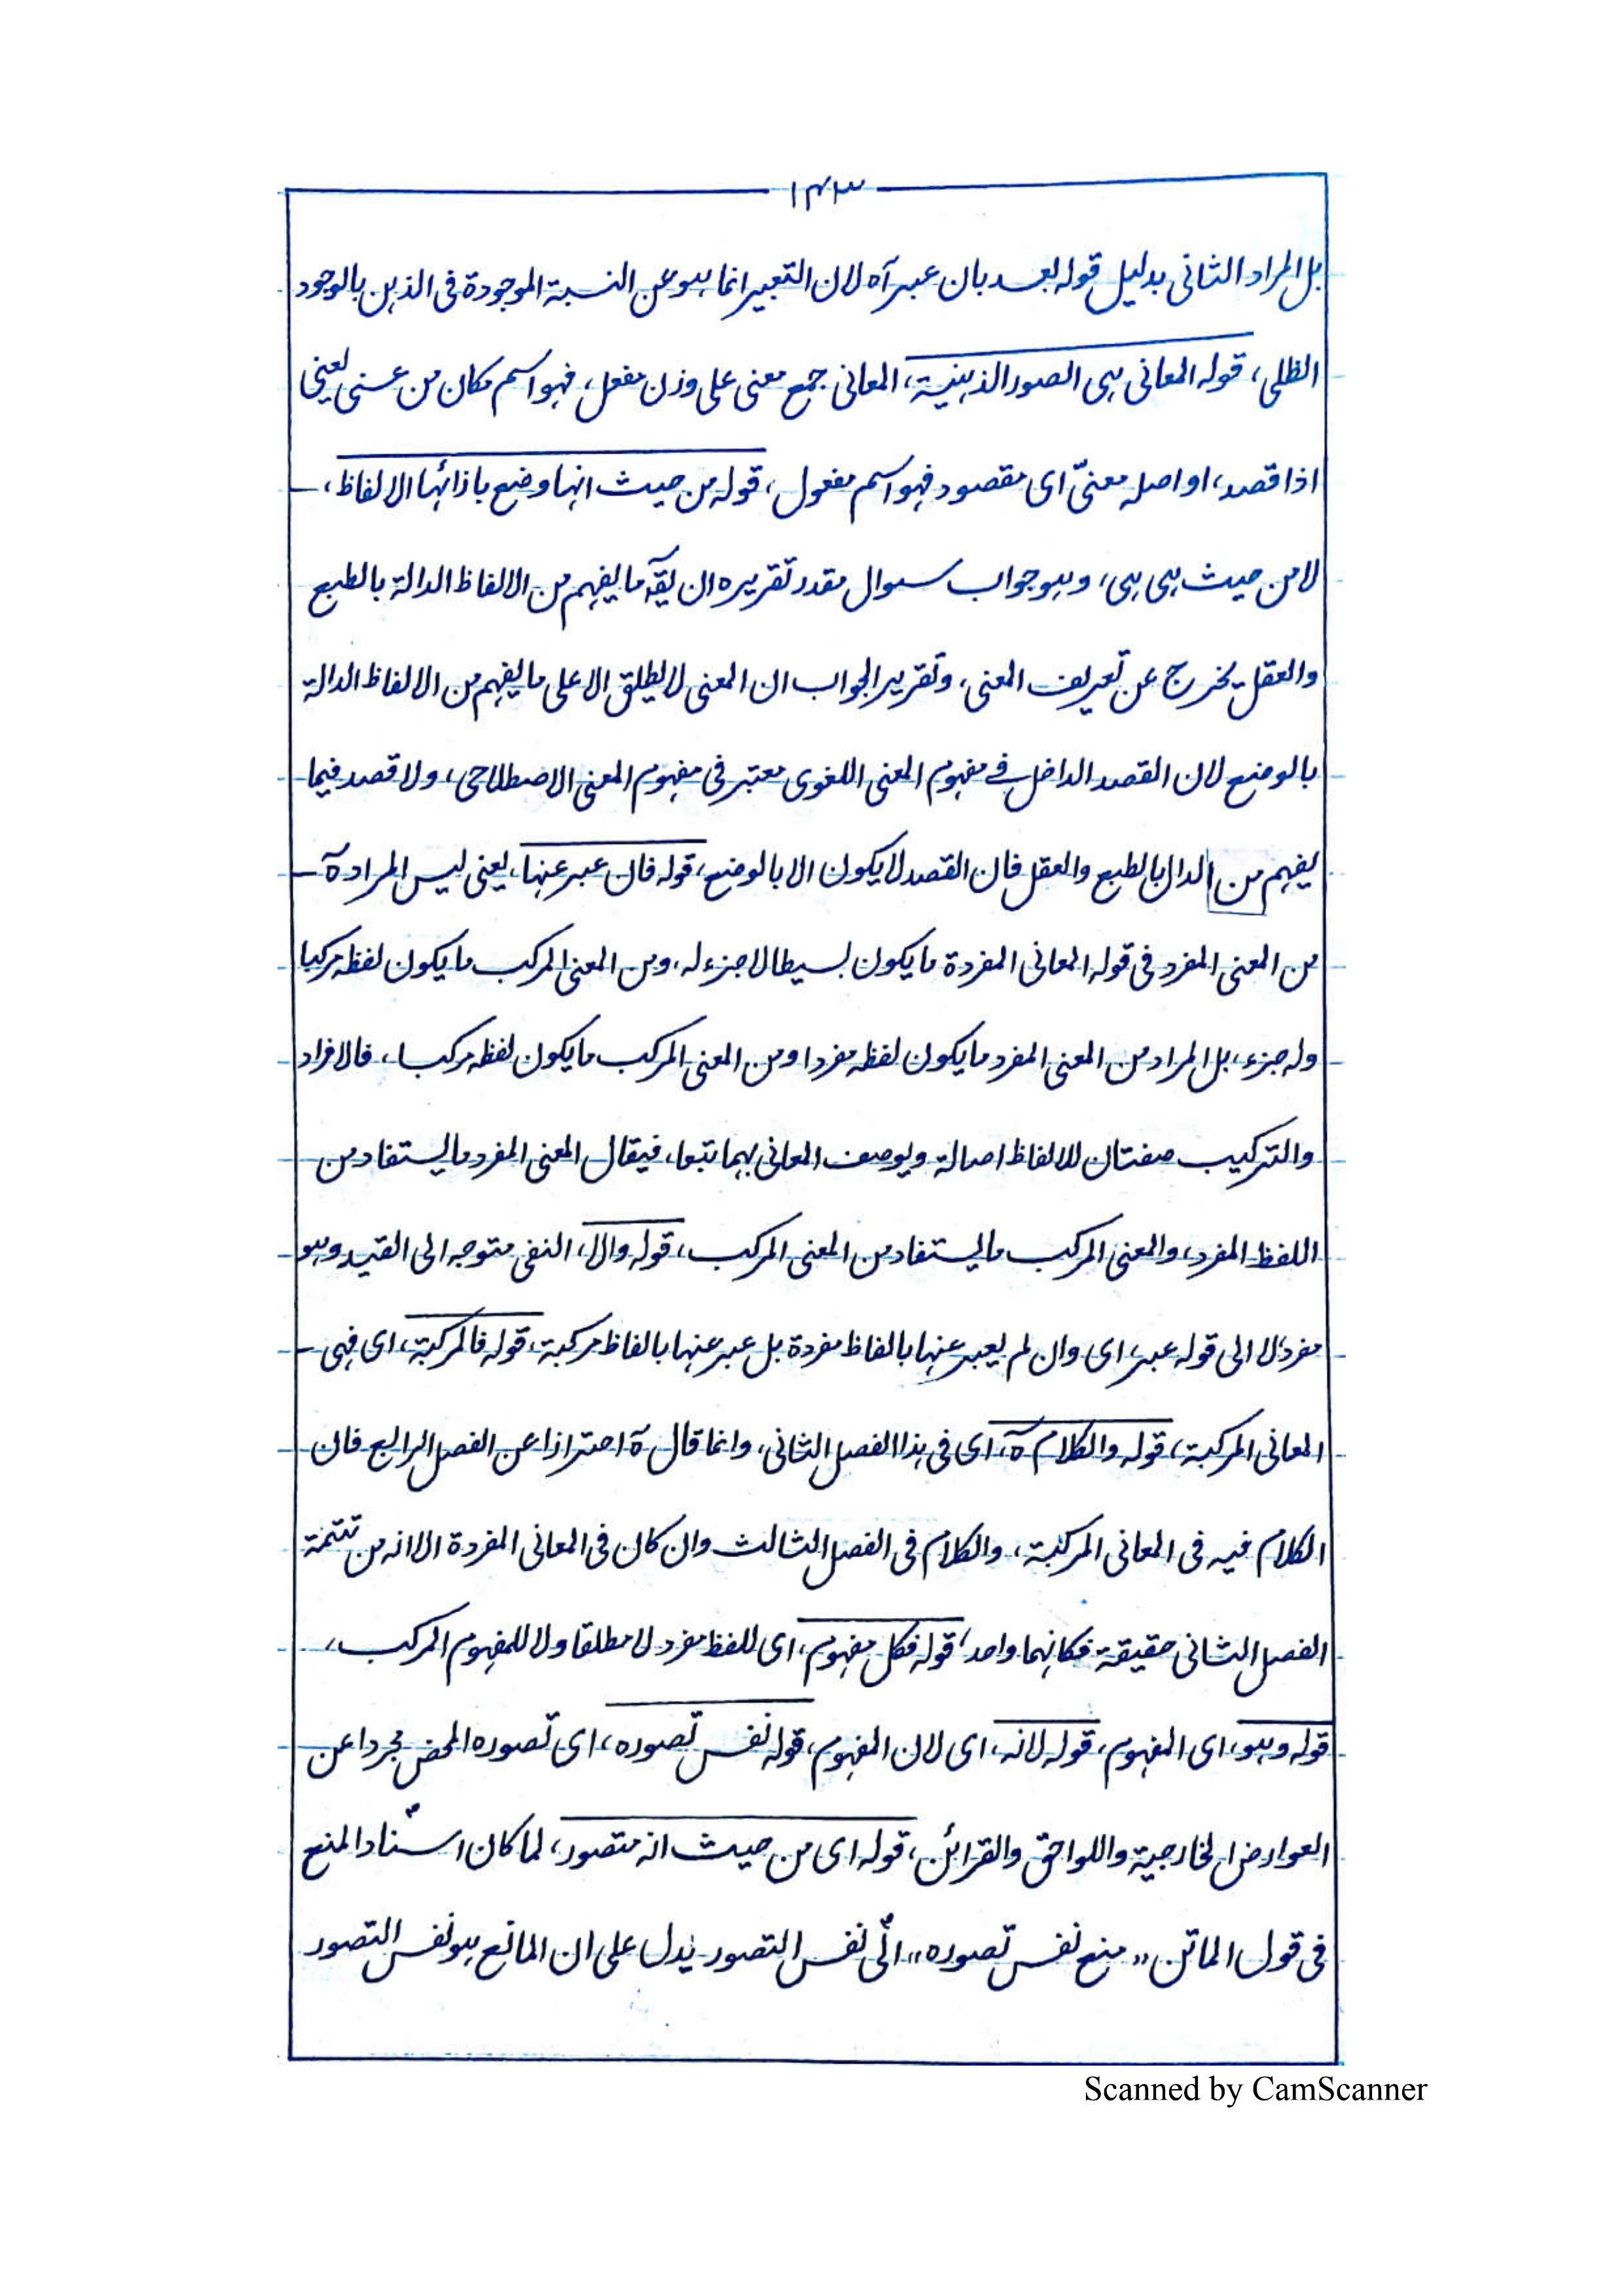 ۱۴۳
بل المراد الثانی بدلیل قوله بعد بان عبر آه لان التعبیر انما هو عن النسبة الموجودة فی الذهن بالوجود
الظلی، قوله المعانی هی الصور الذهنیة، المعانی جمع معنی علی وزن مفعل، فهو اسم مکان من عنی یعنی
اذا قصد، او اصله معنیّ ای مقصود فهو اسم مفعول، قوله من حیث انها وضع بازائها الالفاظ،
لا من حیث هی هی، وهو جواب سوال مقدر تقریره ان یقٓ ما یفهم من الالفاظ الدالة بالطبع
والعقل یخرج عن تعریف المعنی، وتقریر الجواب ان المعنی لا یطلق الا علی ما یفهم من الالفاظ الدالة
بالوضع لان القصد الداخل فی مفهوم المعنی اللغوی معتبر فی مفهوم المعنی الاصطلاحی، ولا قصد فیما
یفهم من الدال بالطبع والعقل فان القصد لا یکون الا بالوضع، قوله فان عبر عنها، یعنی لیس المراد ةٓ
من المعنی المفرد فی قوله المعانی المفردة ما یکون بسیطا لا جزء له، ومن المعنی المرکب ما یکون لفظه مرکبا
وله جزء، بل المراد من المعنی المفرد ما یکون لفظه مفردا ومن المعنی المرکب ما یکون لفظه مرکبا، فالافراد
والترکیب صفتان للالفاظ اصالة ویوصف المعانی بهما تبعا، فیقال المعنی المفرد ما یستفاد من
اللفظ المفرد، والمعنی المرکب ما یستفاد من المعنی المرکب، قوله والا، النفی متوجه الی القید وهو
مفرد لا الی قوله عبر، ای وان لم یعبر عنها بالفاظ مفردة بل عبر عنها بالفاظ مرکبة، قوله فالمرکبة، ای فهی
المعانی المرکبة، قوله والکلام ةٓ، ای فی هذا الفصل الثانی، وانما قال ةٓ احترازا عن الفصل الرابع فان
الکلام فیه فی المعانی المرکبة، والکلام فی الفصل الثالث وان کان فی المعانی المفردة الا انه من تتمة
الفصل الثانی حقیقة فکانهما واحد، قوله فکل مفهوم، ای للفظ مفرد لا مطلقا ولا للمفهوم المرکب،
قوله وهو، ای المفهوم، قوله لانه، ای لان المفهوم، قوله نفس تصوره، ای تصوره المحض مجردا عن
العوارض الخارجیة واللواحق والقرائن، قوله ای من حیث انه متصور، لما کان اسناد المنع
فی قول الماتن "منع نفس تصوره" الی نفس التصور یدل علی ان المانع هو نفس التصور
Scanned by CamScanner